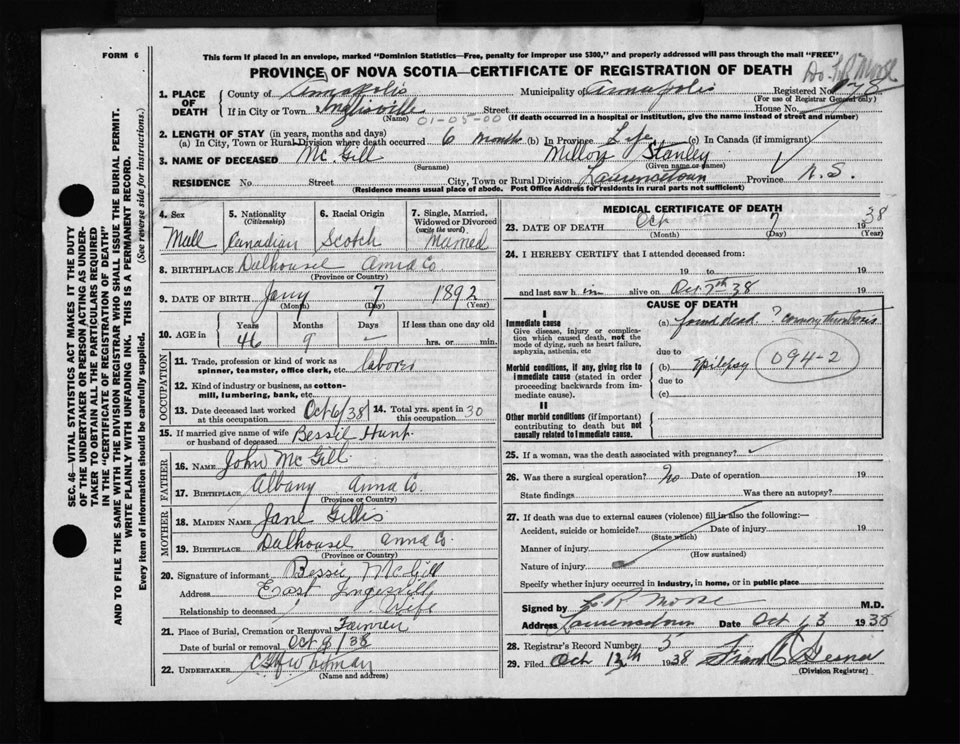 FORM 6
This form if placed in an envelope, marked "Dominion Statistics—Free, penalty for improper use $300," and properly addressed will pass through the mail "FREE"
PROVINCE OF NOVA SCOTIA—CERTIFICATE OF REGISTRATION OF DEATH
1. PLACE OF DEATH
County of Annapolis Municipality of Annapolis Registered No.
(For use of Registrar General only)
If in City or Town Inglisville Street House No.
(Name) 01-05-00 (If death occurred in a hospital or institution, give the name instead of street and number)
2. LENGTH OF STAY (in years, months and days)
(a) In City, Town or Rural Division where death occurred 6 months (b) In Province Life (c) In Canada (if immigrant)
3. NAME OF DECEASED Mc Gill Stanley
(Surname) (Given name or names)
RESIDENCE No Street City, Town or Rural Division Lawrencetown Province N. S.
(Residence means usual place of abode. Post Office Address for residents in rural parts not sufficient)
4. Sex Male
5. Nationality (Citizenship) Canadian
6. Racial Origin Scotch
7. Single, Married, Widowed or Divorced (write the word) Married
8. BIRTHPLACE Dalhousie Anna Co.
(Province or Country)
9. DATE OF BIRTH Jany 7 1892
(Month) (Day) (Year)
10. AGE in Years 46 Months 9 Days — If less than one day hrs. or min.
OCCUPATION
11. Trade, profession or kind of work as spinner, teamster, office clerk, etc. labores
12. Kind of industry or business, as cotton-mill, lumbering, bank, etc.
13. Date deceased last worked at this occupation Oct 6/38
14. Total yrs. spent in this occupation 30
15. If married give name of wife or husband of deceased Bessie Hunt
FATHER
16. NAME John McGill
17. BIRTHPLACE Albany Anna Co.
(Province or Country)
MOTHER
18. MAIDEN NAME Jane Gillis
19. BIRTHPLACE Dalhousie Anna Co.
(Province or Country)
20. Signature of informant Bessie McGill
Address East Inglesville
Relationship to deceased Wife
21. Place of Burial, Cremation or Removal
Date of burial or removal Oct 9/38
22. UNDERTAKER
(Name and address)
MEDICAL CERTIFICATE OF DEATH
23. DATE OF DEATH Oct 7 1938
(Month) (Day) (Year)
24. I HEREBY CERTIFY that I attended deceased from:
19 to 19
and last saw him alive on Oct 7th 38 19
CAUSE OF DEATH
I
Immediate cause
Give disease, injury or complication which caused death, not the mode of dying, such as heart failure, asphyxia, asthenia, etc
(a) found dead ? coronary thrombosis
due to
Morbid conditions, if any, giving rise to immediate cause (stated in order proceeding backwards from immediate cause).
(b) Epilepsy 094-2
due to
(c)
II
Other morbid conditions (if important) contributing to death but not causally related to immediate cause.
25. If a woman, was the death associated with pregnancy?
26. Was there a surgical operation? No Date of operation 19
State findings Was there an autopsy?
27. If death was due to external causes (violence) fill in also the following:—
Accident, suicide or homicide? Date of injury 19
(State which)
Manner of injury
(How sustained)
Nature of injury
Specify whether injury occurred in industry, in home, or in public place
Signed by Morse M.D.
Address Lawrencetown Date Oct 1938
28. Registrar's Record Number 5
29. Filed Oct 12th 1938
(Division Registrar)
SEC. 46—VITAL STATISTICS ACT MAKES IT THE DUTY
OF THE UNDERTAKER OR PERSON ACTING AS UNDER-
TAKER TO OBTAIN ALL THE PARTICULARS REQUIRED
IN THE "CERTIFICATE OF REGISTRATION OF DEATH"
AND TO FILE THE SAME WITH THE DIVISION REGISTRAR WHO SHALL ISSUE THE BURIAL PERMIT.
WRITE PLAINLY WITH UNFADING INK. THIS IS A PERMANENT RECORD.
Every item of information should be carefully supplied. (See reverse side for instructions.)